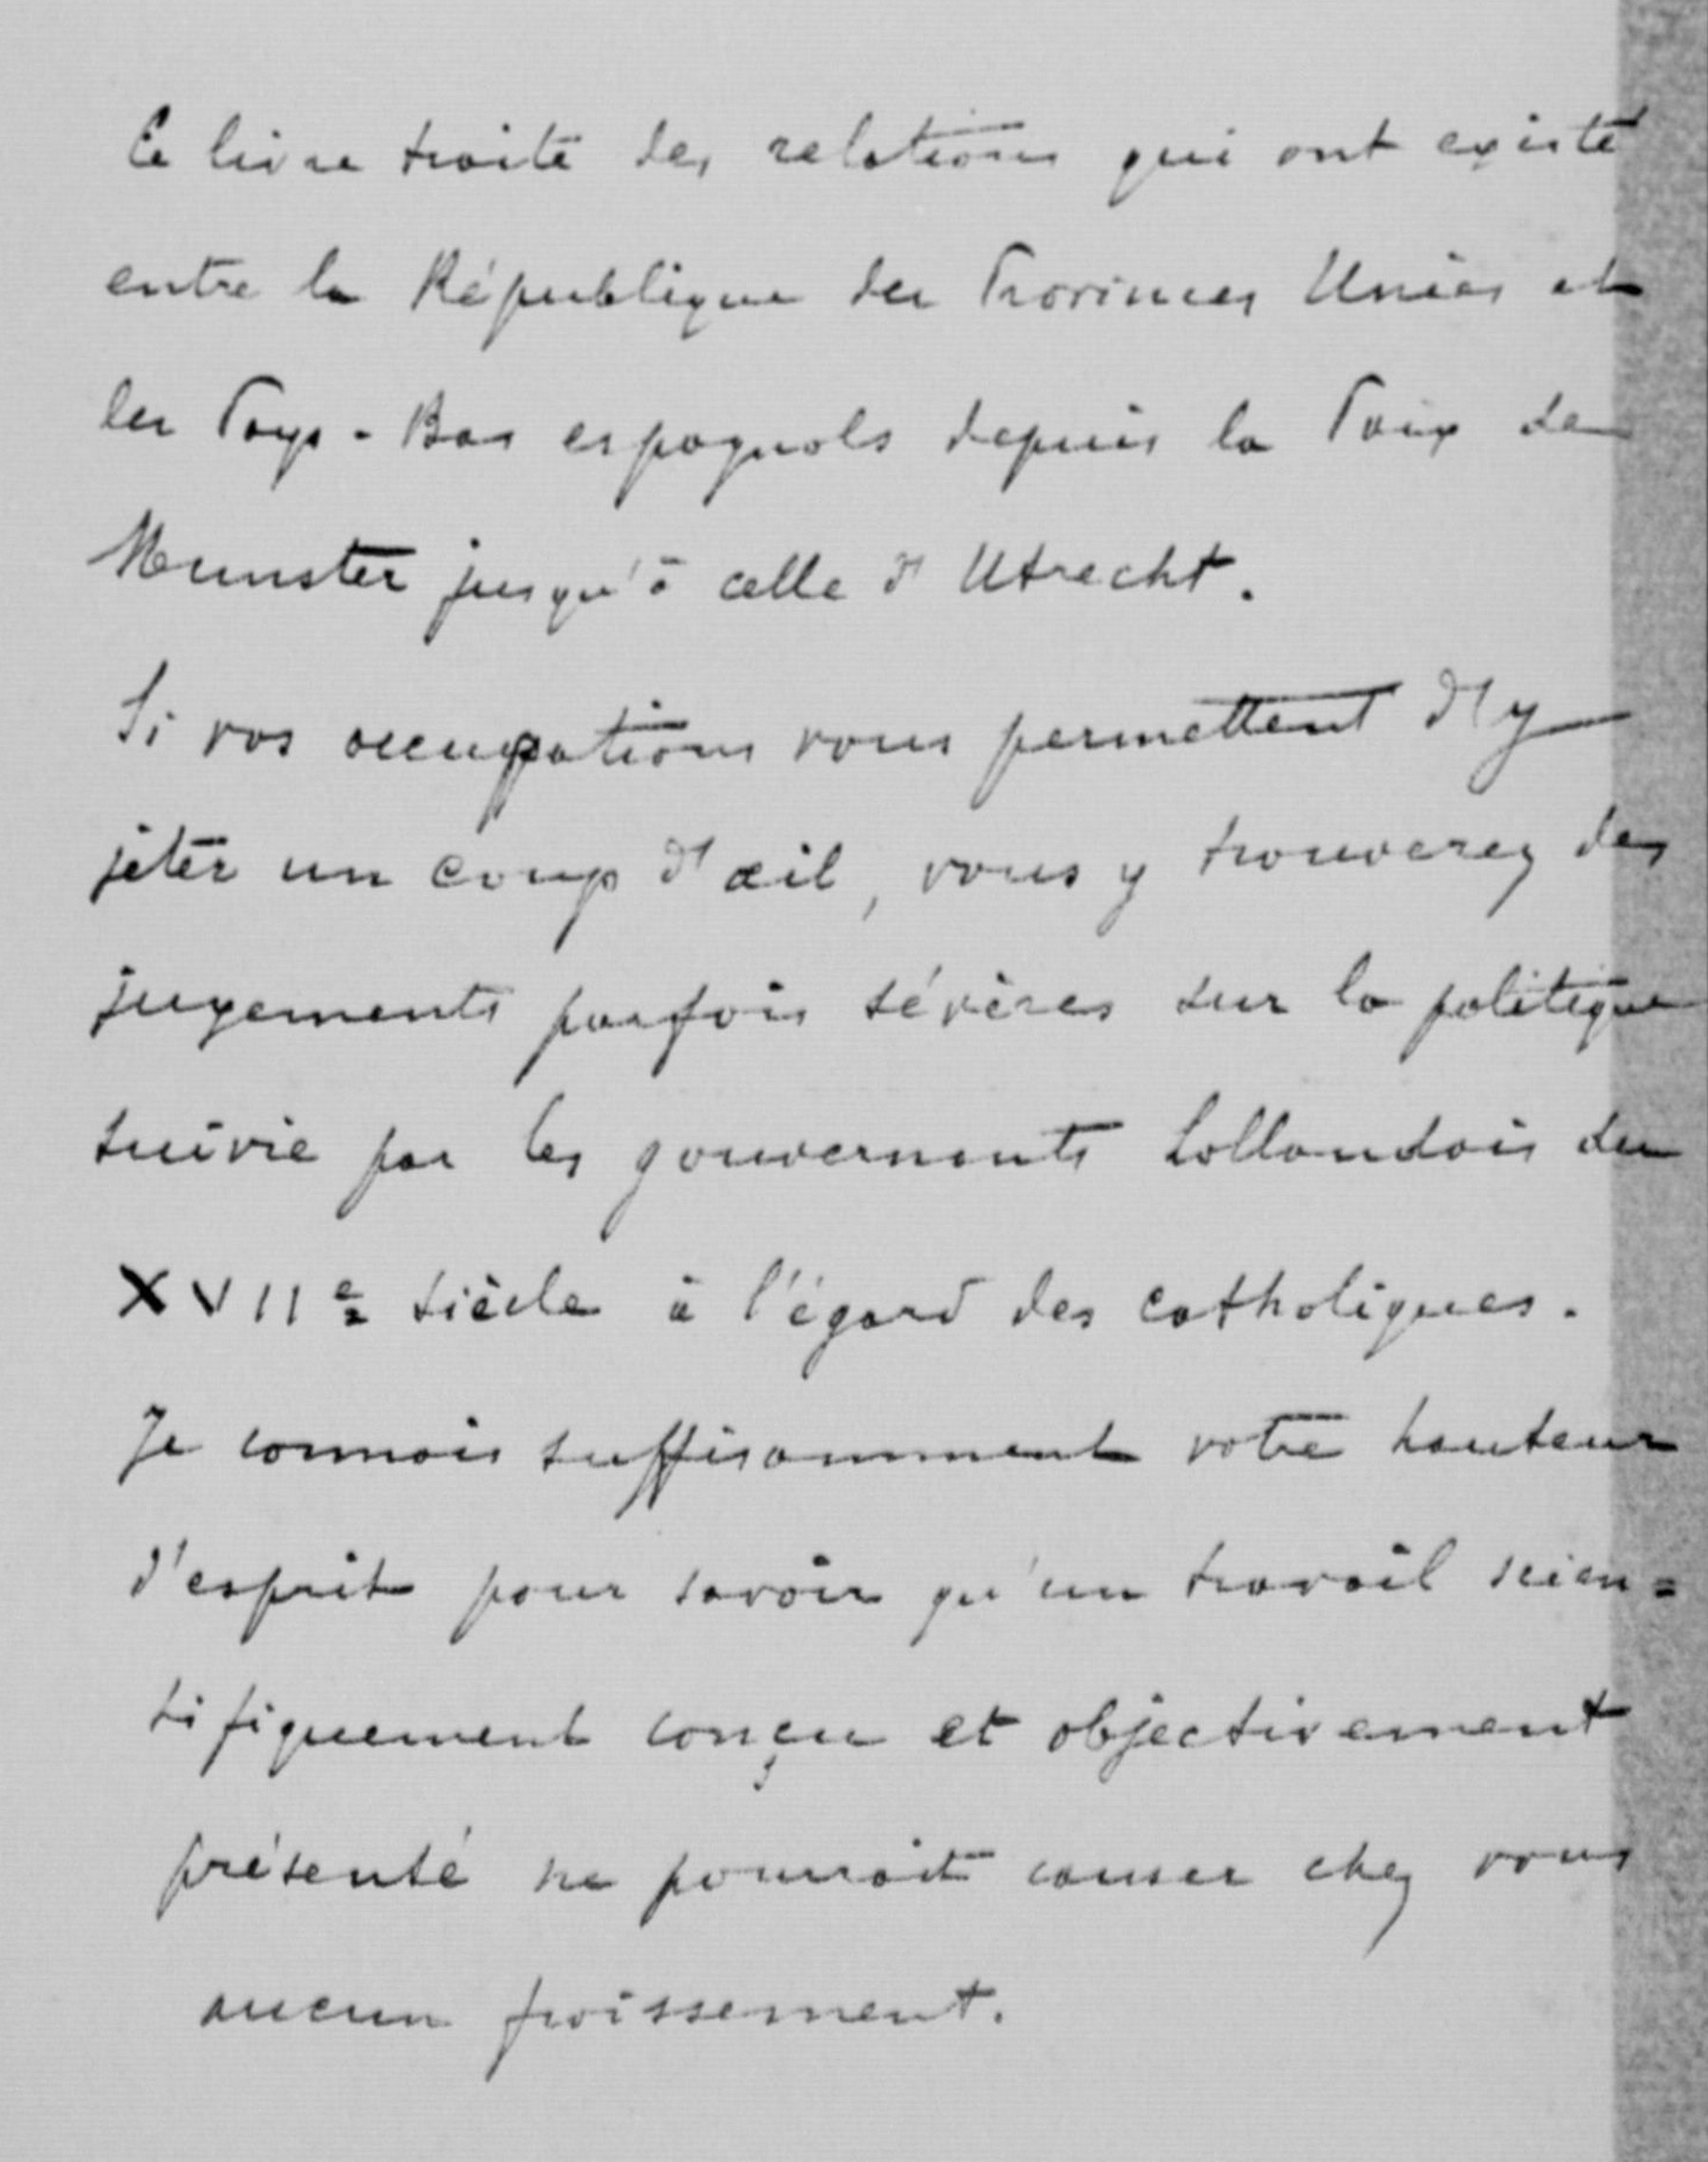 Ce livre traite des relations qui ont existé
entre la République des Provinces Unies et
les Pays-Bas espagnols depuis la Paix de
Munster jusqu'à celle d'Utrecht.
Si vos occupations vous permettent d'y
jeter un coup d'œil, vous y trouverez des
jugements parfois sévères sur la politique
suivie par les gouvernements hollandais du
XVIIe siècle à l'égard des catholiques.
Je connais suffisamment votre hauteur
d'esprit pour savoir qu'un travail scien=
tifiquement conçu et objectivement
présenté ne pourrait causer chez vous
aucun froissement.